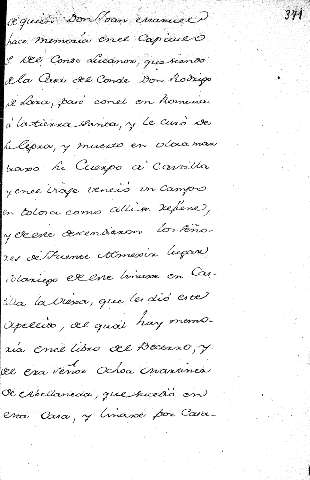 341
de quien Don Joan Manuel
hace memoria en el Capitulo
del Conde Lucanor, que siendo
de la Casa del Conde Don Rodrigo
de Lara, pasó con el en Romeria
á la tierra Santa, y le curó de
la lepra, y muerto en Ultramar
traxo su Cuerpo á Castilla
y en el viaje venció un Campo
en tolosa como alli se refiere,
y de este descendieron los Seño-
res de Fuente Almexir lugar
solariego de este linaxe en Cas-
tilla la Viexa, que les dió este
Apellido, del qual hay memo-
ria en el libro del Becerro, y
de era Señor Ochoa Martinez
de Avellaneda, que sucedió en
esta Casa, y linaxe por Casa-